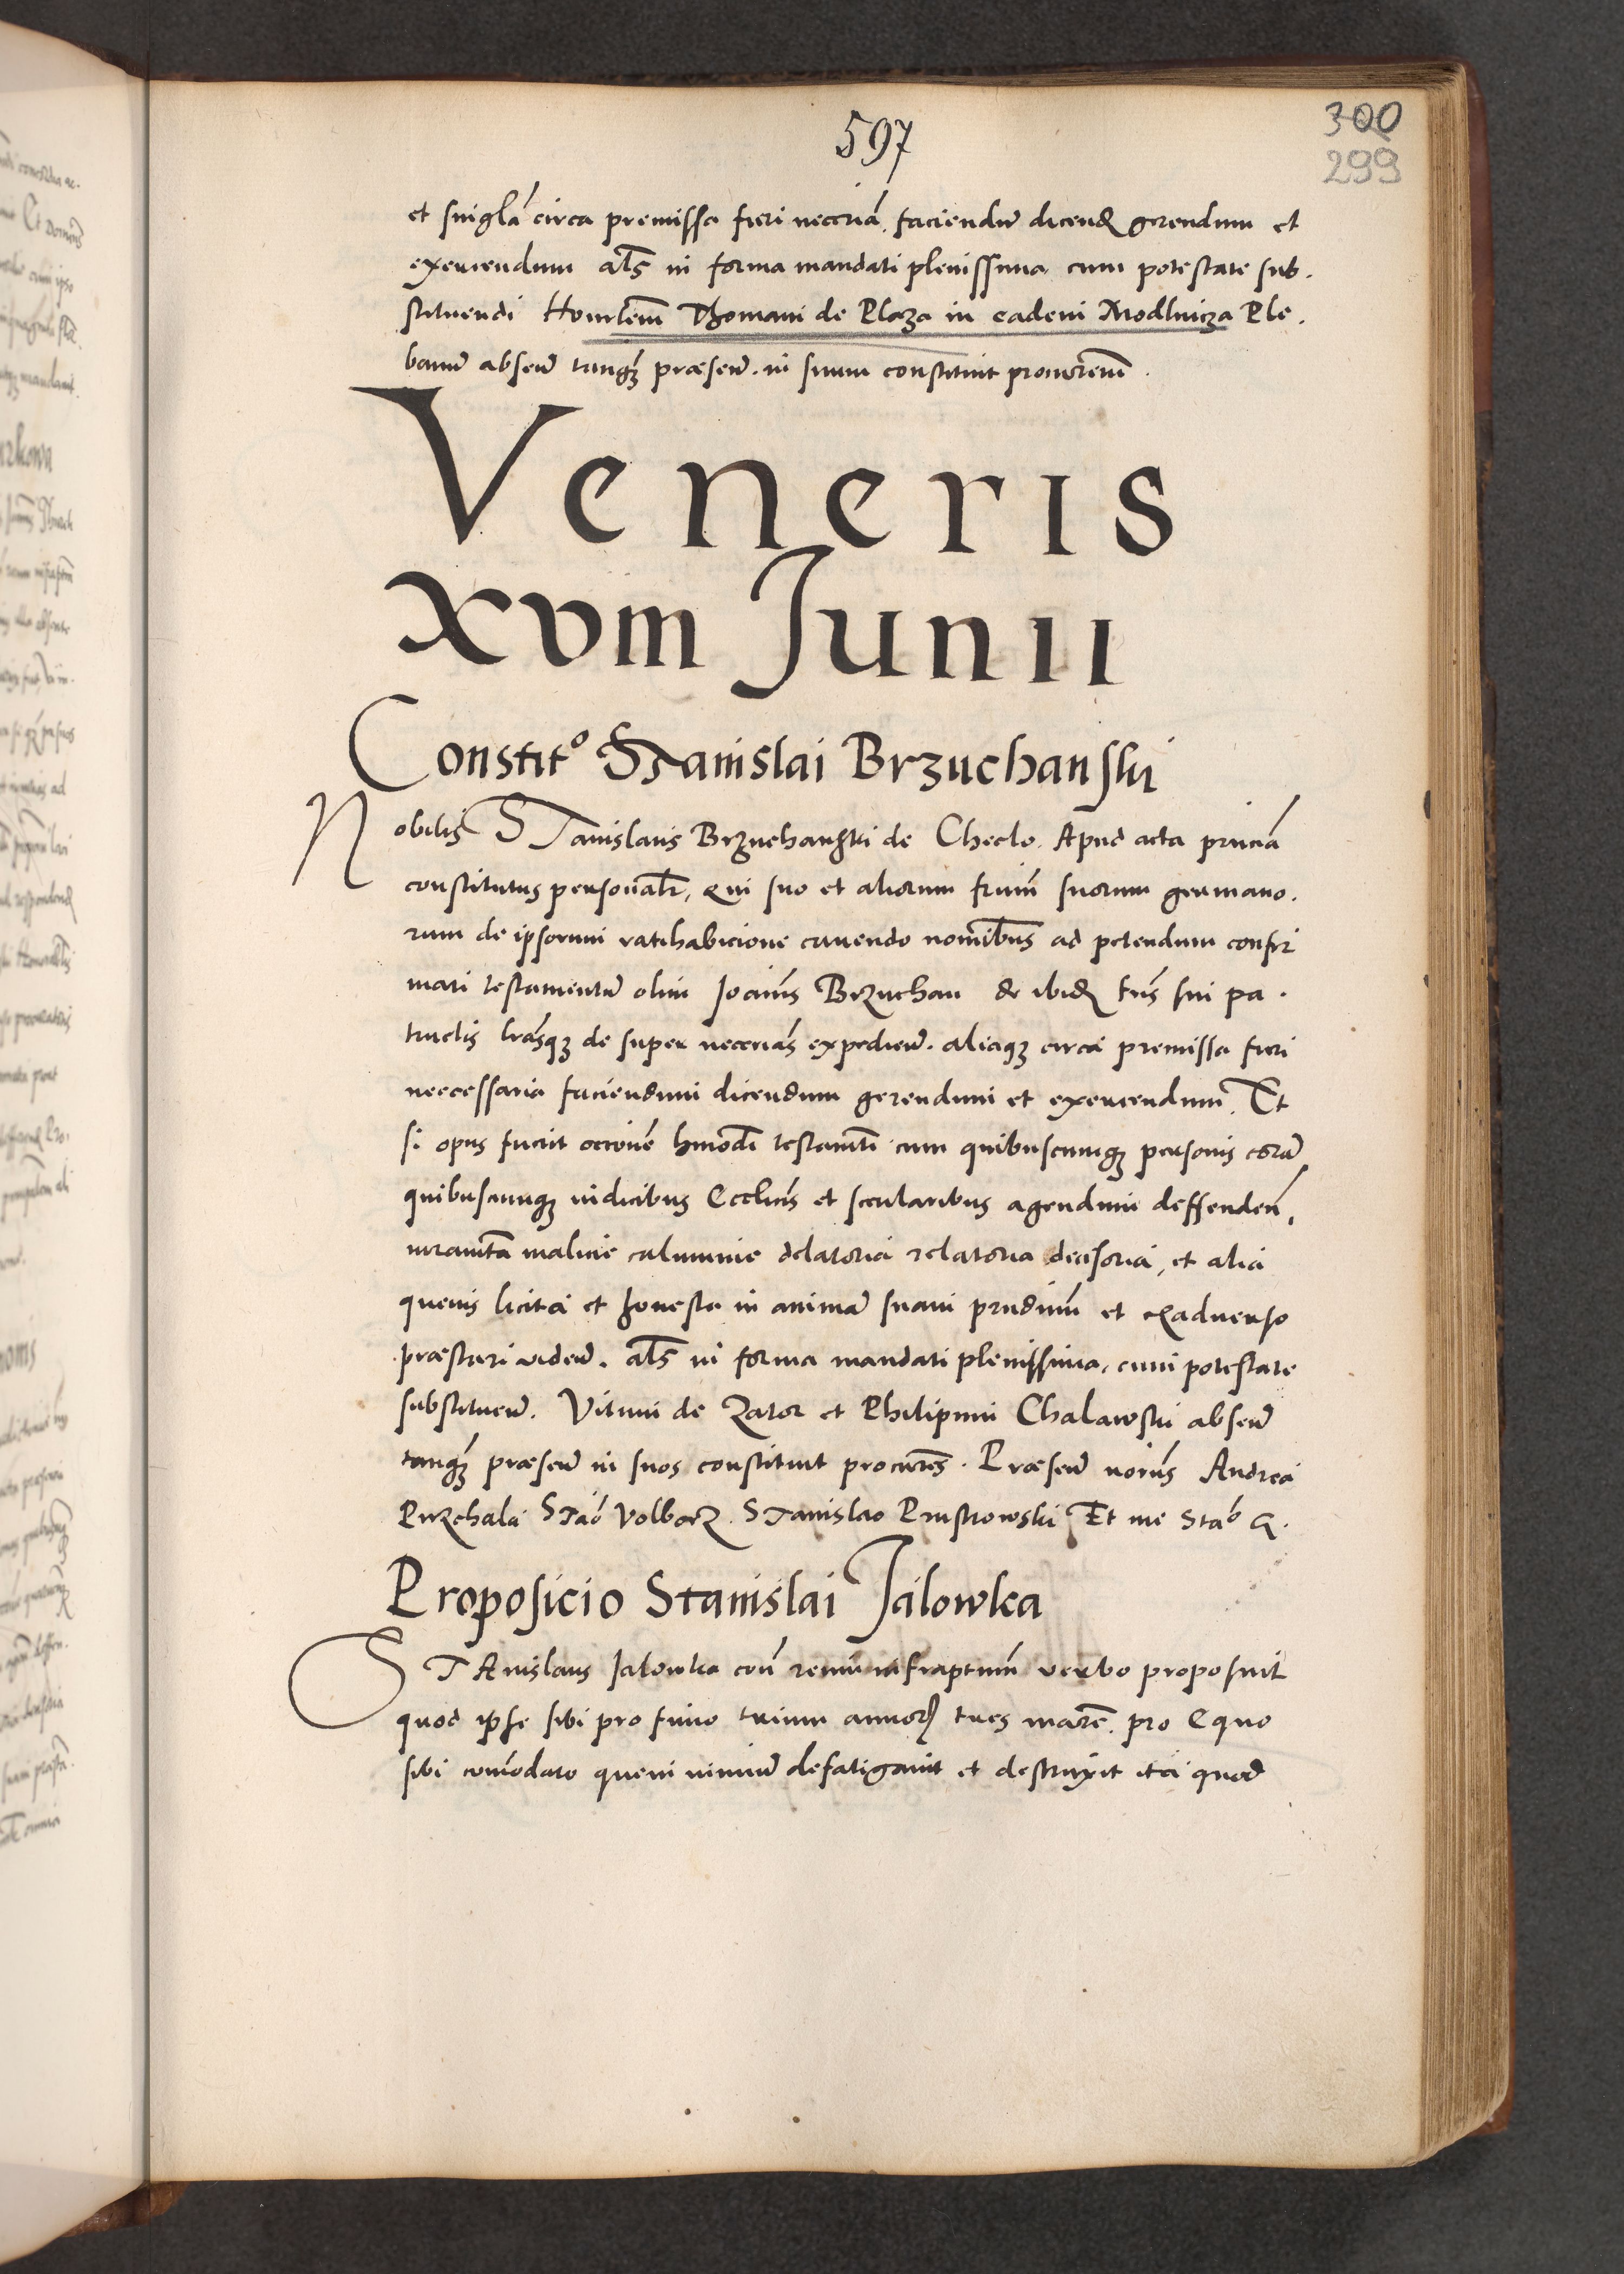 597
300
299
et singlā circa premissa fieri neccriā. faciendū dicend gerendum et
exercendum als in forma mandati plenissima cum potestate sub.
stituendi Honrlem Thomam de Plaza in eadem Modlnicza Ple.
banū absenē tangz præsenē. in suum constituit procuroremm.
Veneris
xvm Junii
Constito Stanislai Brzuchansky
Nobilis STanislaus Brzuchansski de Checlo. Apud acta prnciā
constitutus personalr, Qui suo et aliorum frum suorum germano.
rum de ipsorum ratihabicione cavendo nomibus ad petendum confir
mari testamentū olim Joānis Brzuchan de ibid fris sui pa.
truelis lrāsqz de super neccriās expediend. aliaqz circa premissa fieri
neccessaria faciendum dicendum gerendum et exercendum. Et
si opus fuerit occōne hmōdi testamti cum quibuscumqz personis corā
quibuscumqz iudicibus Ecclicis et secularibus agendum deffenden,
iuramta malicie calumnie delatoria relatoria decisoria, et alia
quevis licita et honesta in animā suam prdnm et exadverso
præstari videnē. als in forma mandati plenissima, cum potestate
substituenē. Vitum de Zator et Philipum Chalawski absenē
tangz præsenē in suos constituit procures. Præsenē noriis Andrea
Przchala Stao Volborz. STanislao Prustrowski Et me Stao G.
Proposicio Stanislai Jalowka
STAnislaus Jalowka con reum infraptum verbo proposuit
quod ipse sibi pro fimo trium annor tres marc. pro Equo
sibi comodato quem nimiū defatigavit et destruxit ita quod